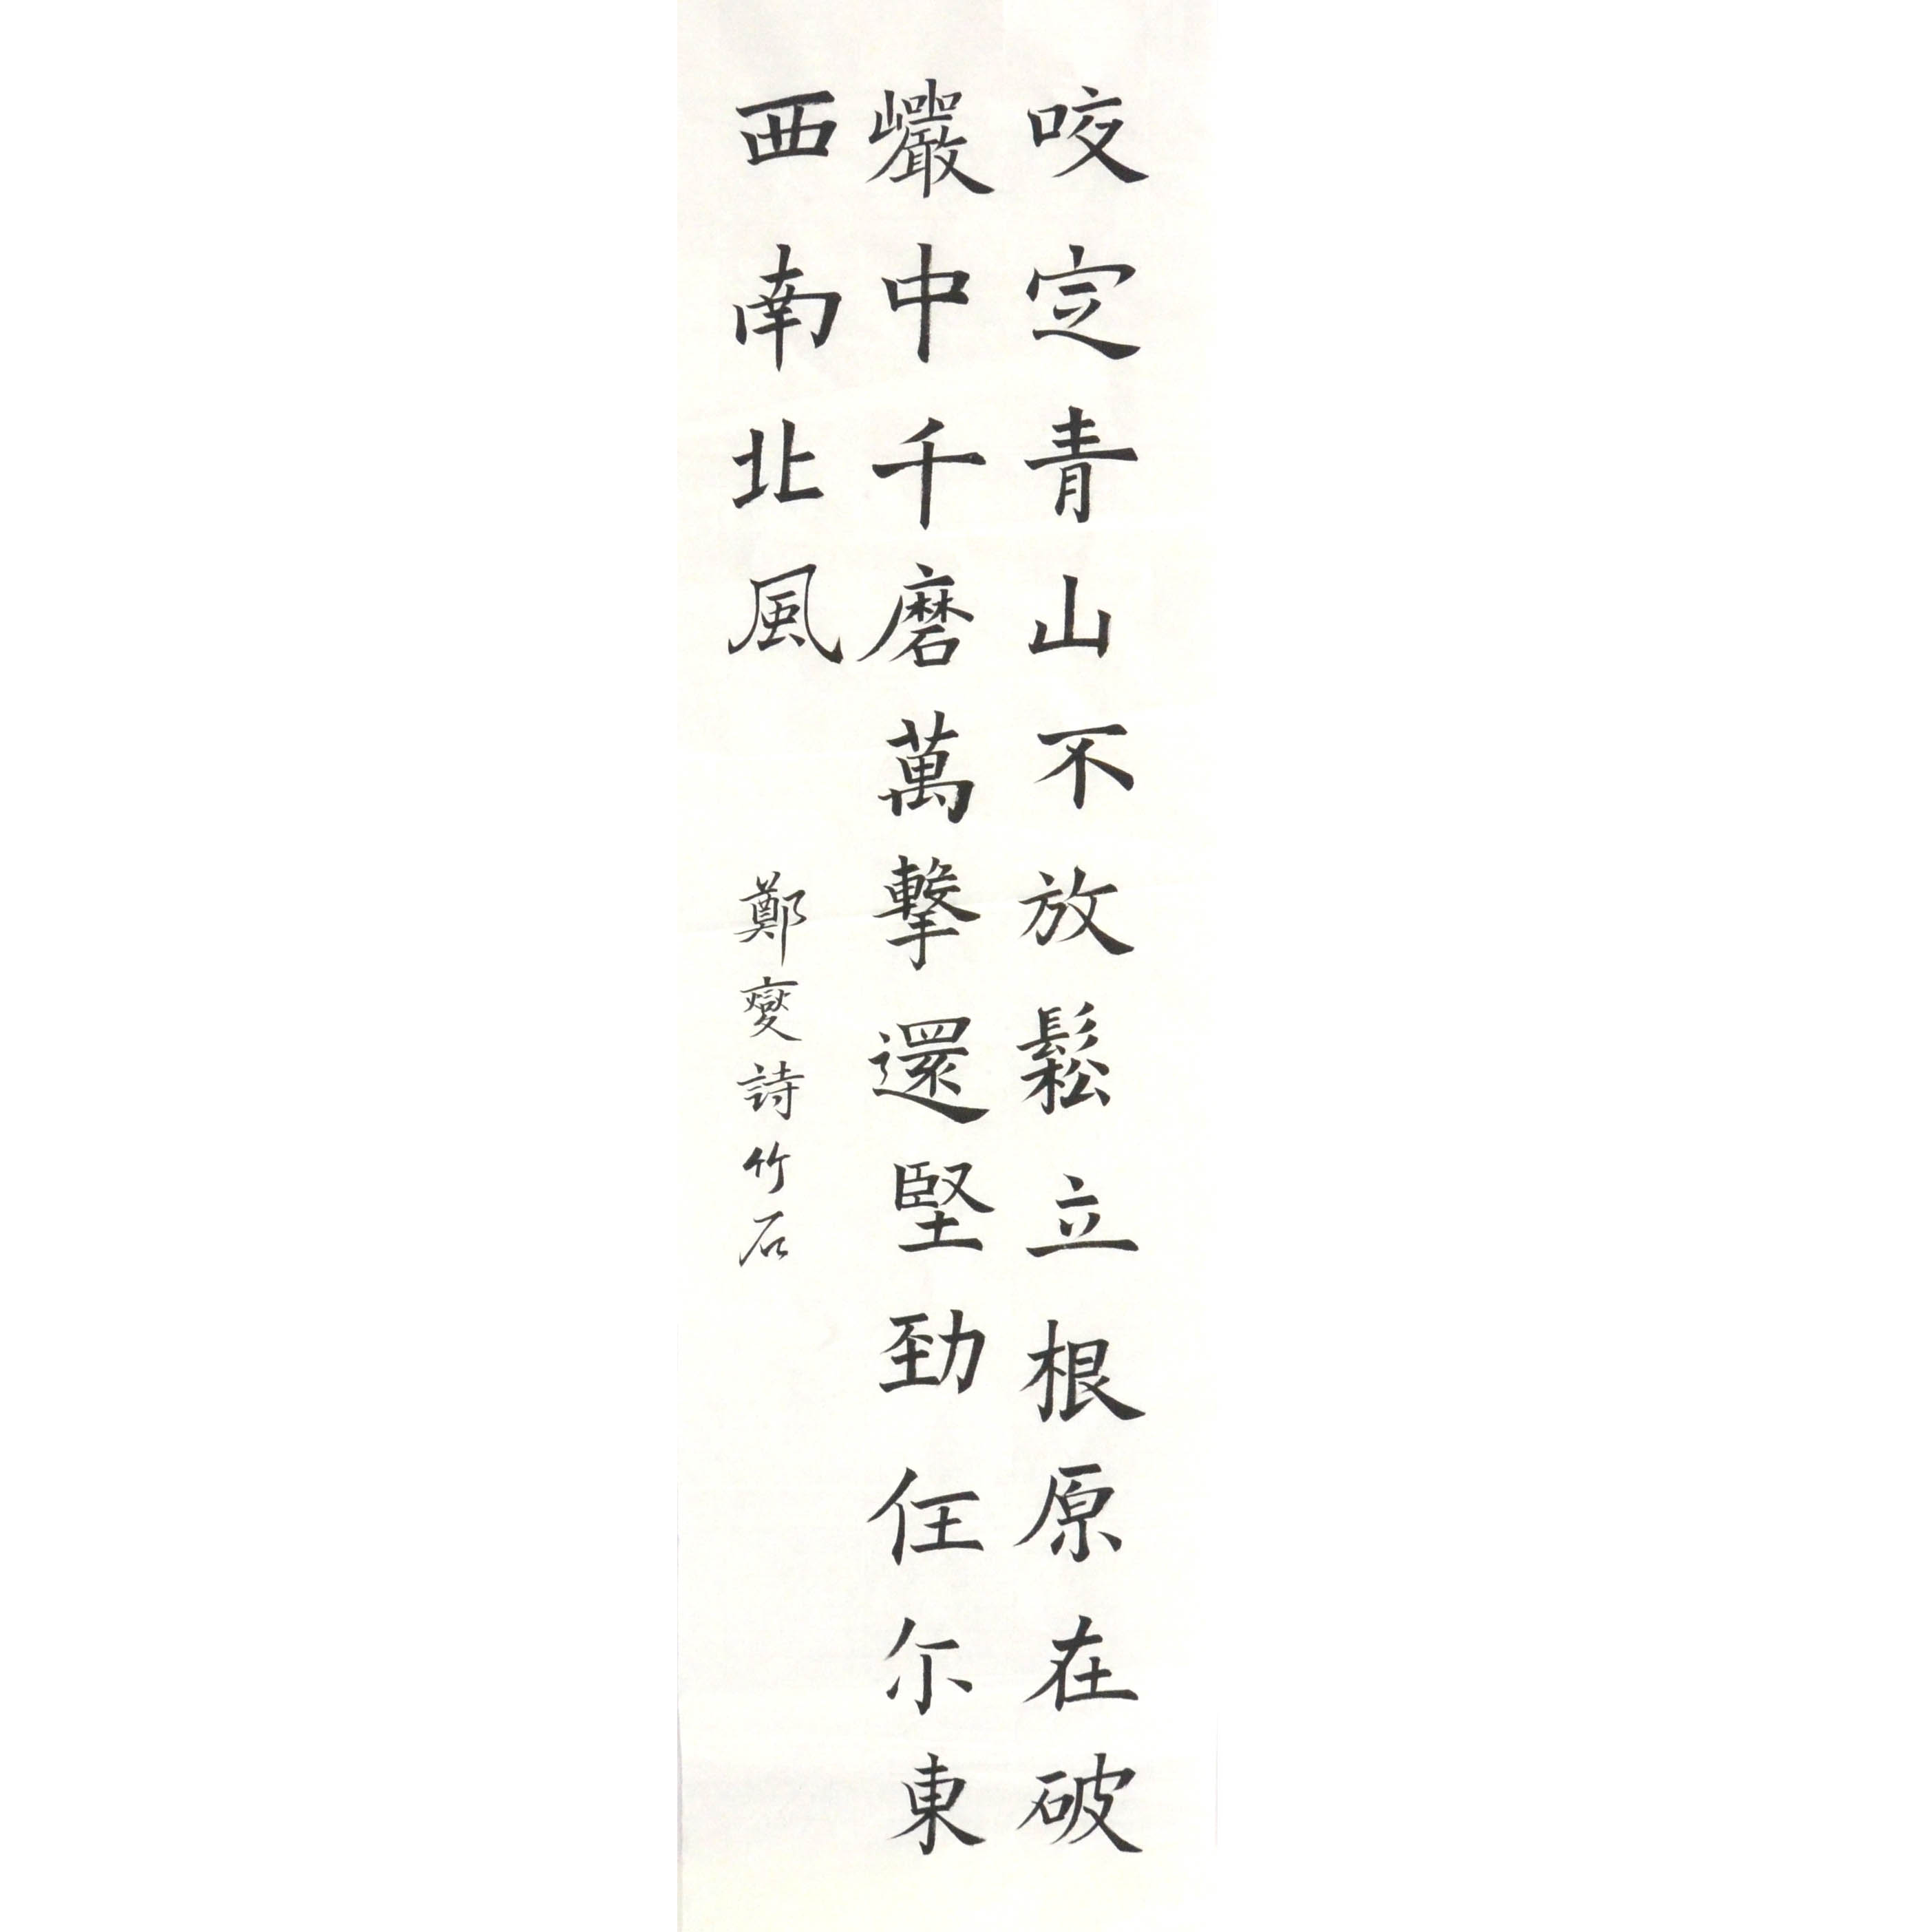 咬定青山不放鬆立根原在破
巗中千磨萬擊還堅勁任尓東
西南北風
鄭燮詩竹石